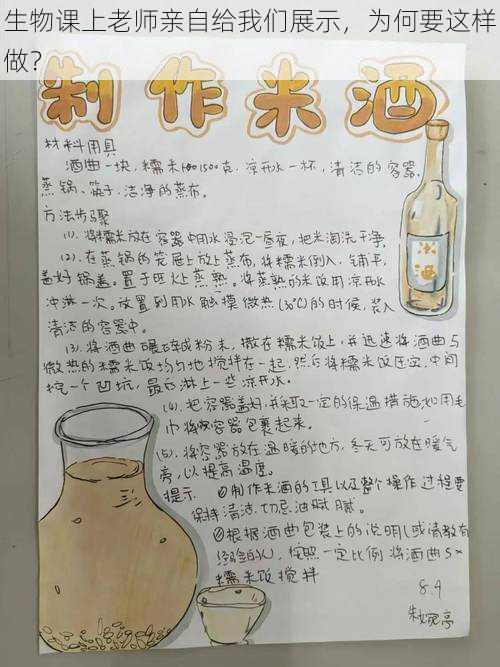 生物课上老师亲自给我们展示，为何要这样
做？
制作米酒
材料用具
酒曲一块，糯米1500克，凉开水一杯，清洁的容器，
蒸锅、筷子、洁净的蒸布。
方法步骤
(1)、将糯米放在容器中用水浸泡一昼夜，把米淘洗干净。
(2)、在蒸锅的笼屉上放上蒸布，将糯米倒入，铺平，
盖好锅盖。置于旺火上蒸熟。将蒸熟的米饭用凉开水
冲淋一次。放置到用水触摸微热(30℃)的时候，装入
清洁的容器中。
(3)、将酒曲碾碎成粉末，撒在糯米饭上，并迅速将酒曲与
微热的糯米饭均匀地搅拌在一起，然后将糯米饭压实，中间
挖一个凹坑，最后淋上一些凉开水。
(4)、把容器盖好，并采取一定的保温措施，如用毛
巾将容器包裹起来。
(5)、将容器放在温暖的地方，冬天可放在暖气
旁，以提高温度。
提示 ①制作米酒的工具以及整个操作过程要
保持清洁，切忌油腻。
②根据酒曲包装上的说明(或请教有
经验的人)，按照一定比例将酒曲与
糯米饭搅拌
米酒
8.4